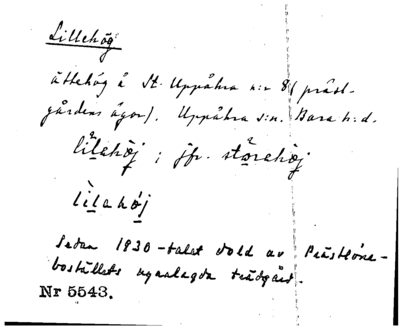 Lillehög
ättehög å St. Uppåkra n:r 8 (präst-
gårdens ägor). Uppåkra s:n. Bara h:d.
lìlahòj ; jfr. stòrehòj
lìlahój
Sedan 1830-talet dold av Prästlöne-
boställets nyanlagda trädgård.
Nr 5543.